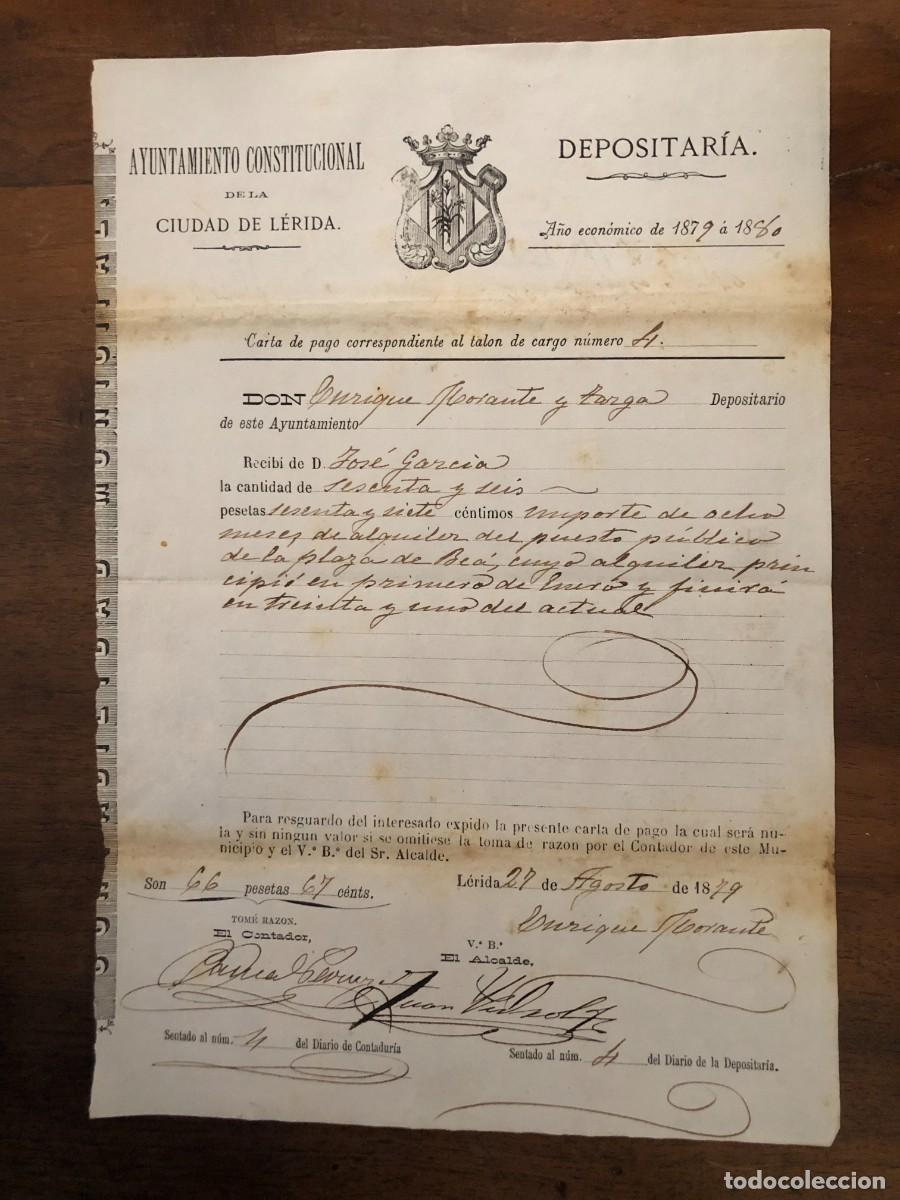 AYUNTAMIENTO CONSTITUCIONAL
DE LA
CIUDAD DE LÉRIDA.
DEPOSITARÍA.
Año económico de 1879 á 1880
Carta de pago correspondiente al talon de cargo número 4.
DON Enrique Morante y Targa Depositario
de este Ayuntamiento
Recibí de D. José Garcia
la cantidad de sesenta y seis
pesetas sesenta y siete céntimos importe de ocho
meses de alquiler del puesto público
de la plaza de Beá, cuyo alquiler prin
cipió en primero de Enero y finirá
en treinta y uno del actual
Para resguardo del interesado expido la presente carta de pago la cual será nu-
la y sin ningun valor si se omitiese la toma de razon por el Contador de este Mu-
nicipio y el V.º B.º del Sr. Alcalde.
Son 66 pesetas 67 cénts.
Lérida 27 de Agosto de 1879
Enrique Morante
TOMÉ RAZON.
El Contador,
V.º B.º
El Alcalde,
Juan
Sentado al núm. 4 del Diario de Contaduría
Sentado al núm. 4 del Diario de la Depositaría.
todocoleccion